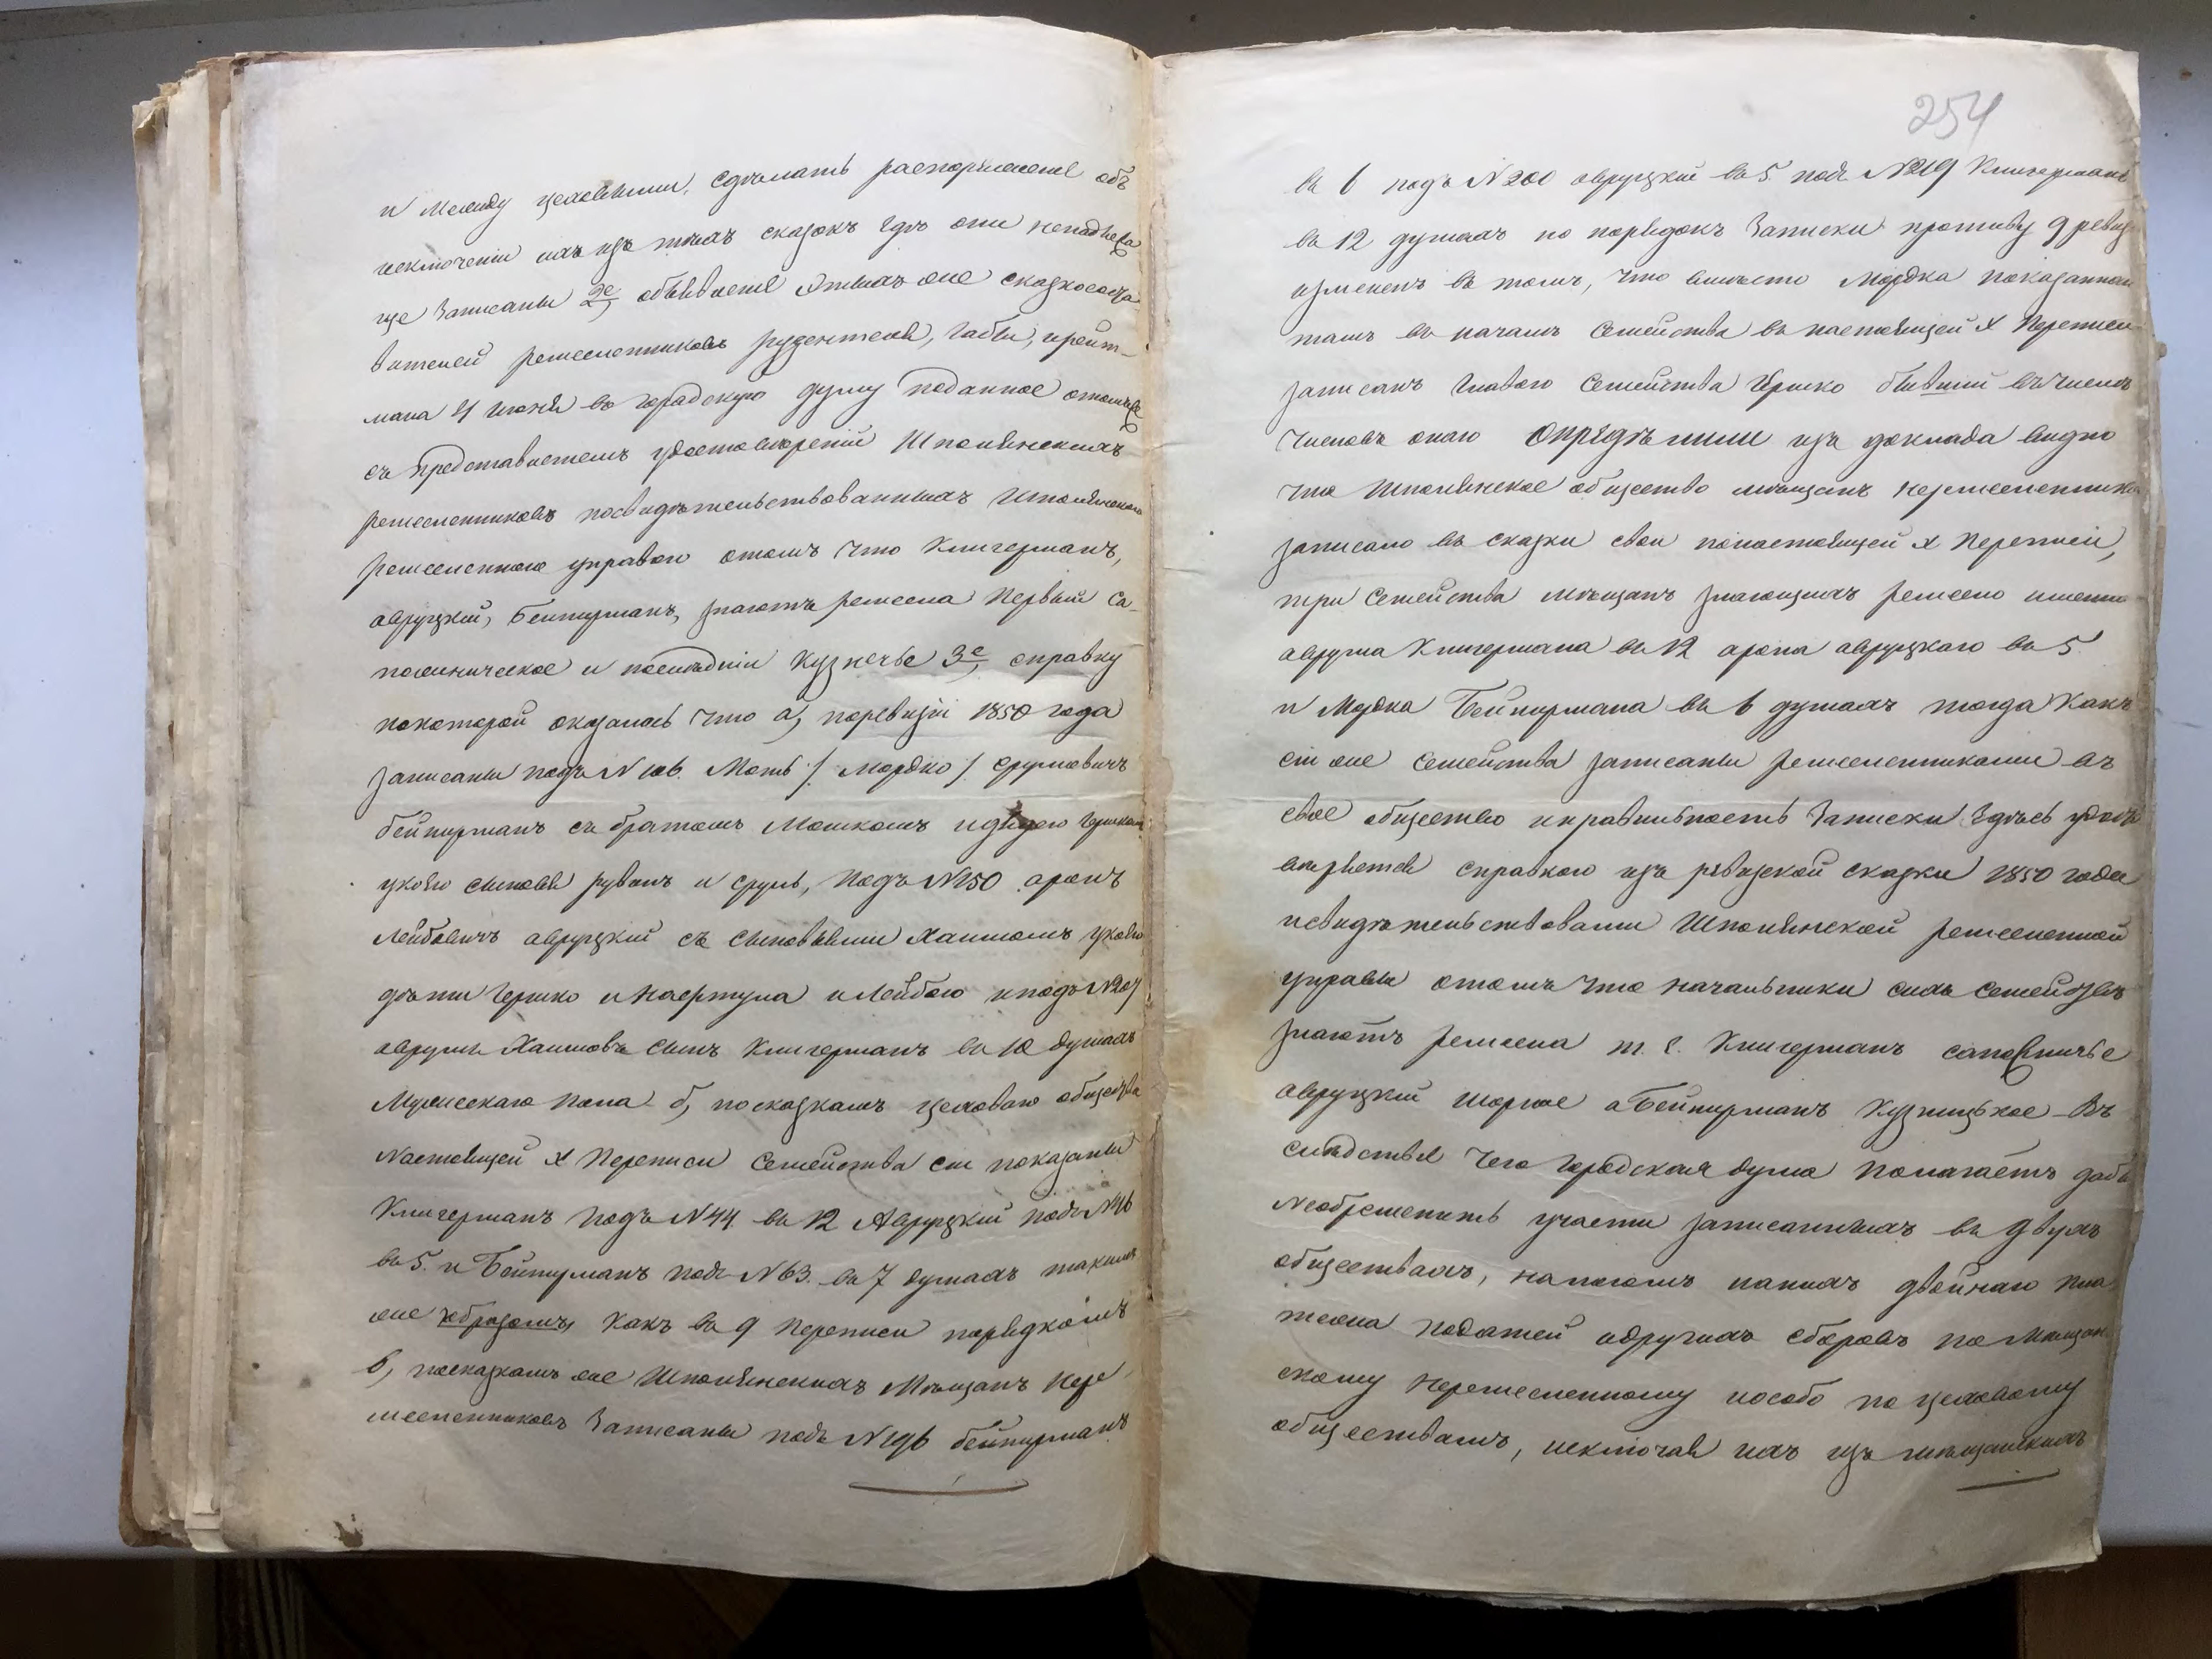 и между цеховыми, сдѣлать распоряженіе объ
исключеніи ихъ изъ тѣхъ сказокъ гдѣ они неподлежа
ще записаны 2е, объявленіе этихъ же сказкососта
вителей ремесленниковъ
мана 21 Іюня въ городскую думу поданное отомже
съ представленіемъ удостовѣреній Шполянскихъ
ремесленниковъ посвидѣтельствованныхъ Шполянскою
ремесленною управою отомъ что Клигерманъ,
овруцкій, Бейнурманъ, знаютъ ремесла первый са-
пожническое и послѣдній кузнечье 3е, справку
покоторой оказалось что а, поревизіи 1850 года
записаны подъ N 106. Моть /: Мордко :/ Срулевичъ
бейнурманъ съ братомъ Мошкомъ и дядею Гершкомъ
укого сыновья рувинъ и сруль, подъ N150 аронъ
Лейбовичъ овруцкій съ сыновьями Хаимомъ укого
дѣти Гершко и Нафтула и Лейбою и подъ N207
аврумъ Хаимовъ сынъ Клигерманъ въ 10 душахъ
Мужескаго пола б, посказкамъ цеховаго общества
Настоящей X Переписи Семейства сіи показаны
Клигерманъ подъ N44 въ 12 Авруцкій подъ N46
въ 5. и Бейнурманъ подъ N63. въ 7 душахъ такимъ
же образомъ, какъ въ 9 Переписи порядкомъ
в, посказкамъ же Шполянскихъ Мѣщанъ нере
месленниковъ записаны подъ N196 бейнурманъ
254
въ 6 подъ N200 авруцкій въ 5. подъ N219 Клигерманъ
въ 12 душахъ но порядокъ записки противу 9 ревизіи
измененъ въ томъ, что вмѣсто Мордка показаннаго
тамъ въ началѣ Семейства въ настоящей X Переписи
записанъ главою Семейства Гершко бывшій въ числѣ
членовъ онаго Опредѣлили изъ доклада видно
что Шполянское общество мѣщанъ неремесленниковъ
записало въ сказки свои понастоящей X Переписи,
три Семейства мѣщанъ знающихъ ремесло именно
аврума Клигермана въ 12 арона авруцкаго въ 5
и Мордка Бейнурмана въ 6 душахъ тогда какъ
сіи же семейства записаны ремесленниками въ
свое общество и правильность записки здѣсь удосто
вѣряется справкою изъ ревизской сказки 1850 года
и свидѣтельствомъ Шполянской ремесленной
управы отомъ что начальники сихъ семействъ
знаютъ ремесла т. е. Клигерманъ сапожничье
авруцкій шорное а Бейнурманъ Кузницкое. Въ
слѣдствіе чего Городская дума полагаетъ дабы
Необременить участи записанныхъ въ двухъ
обществахъ, налогомъ наныхъ двойнаго пла
тежа податей идругихъ сборовъ по Мѣщан
скому неремесленному иособо по цеховому
обществамъ, исключав ихъ изъ мѣщанскихъ